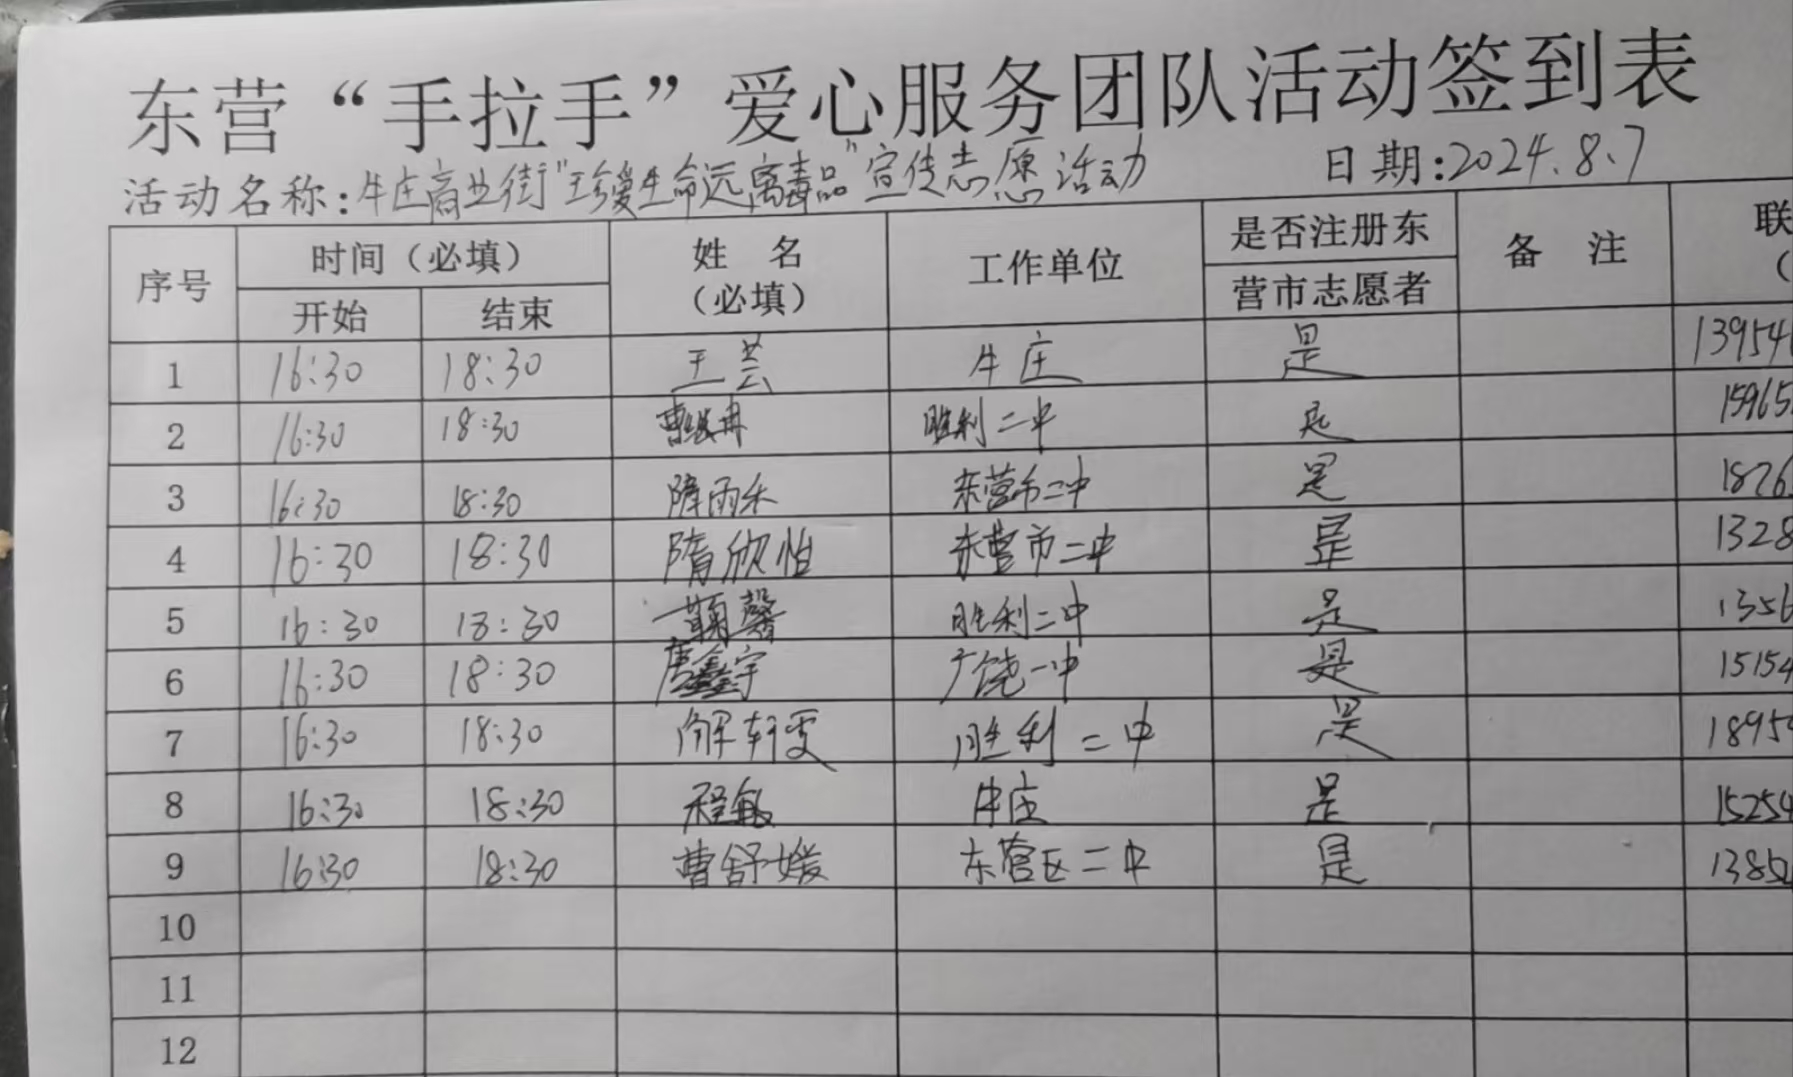 东营“手拉手”爱心服务团队活动签到表
活动名称:牛庄商业街“珍爱生命远离毒品”宣传志愿活动 日期:2024.8.7
序号 时间（必填） 姓 名 工作单位 是否注册东 备 注 联
开始 结束 （必填） 营市志愿者 （
1 16:30 18:30 王芸 牛庄 是 13954
2 16:30 18:30 曹 冉 胜利二中 是 15965
3 16:30 18:30 隋雨禾 东营市二中 是 1826
4 16:30 18:30 隋欣怡 东营市二中 是 1328
5 16:30 18:30 鞠馨 胜利二中 是 1356
6 16:30 18:30 唐鑫宇 广饶一中 是 15154
7 16:30 18:30 解轩雯 胜利二中 是 1895
8 16:30 18:30 程敏 牛庄 是 15254
9 16:30 18:30 曹舒媛 东营区二中 是 1385
10
11
12